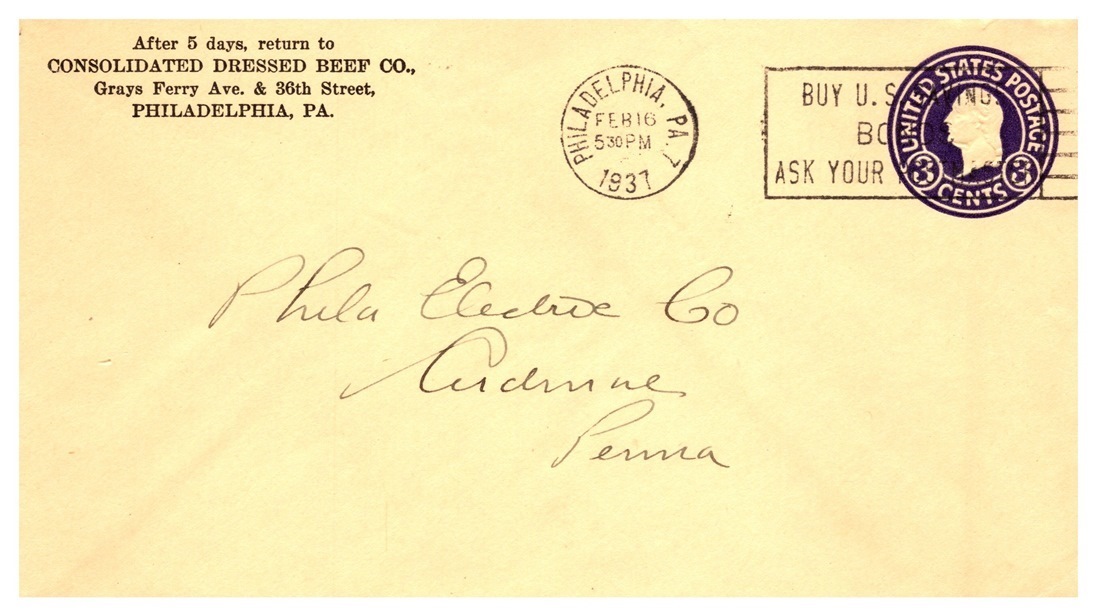 After 5 days, return to
CONSOLIDATED DRESSED BEEF CO.,
Grays Ferry Ave. & 36th Street,
PHILADELPHIA, PA.
PHILADELPHIA, PA. 7
FEB 16
5 30 PM
1937
BUY U.S. SAVINGS
BONDS
ASK YOUR
UNITED STATES POSTAGE
3 CENTS 3
Phila Electric Co
Ardmore
Penna